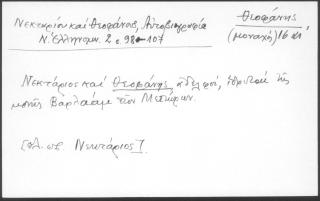 Νεκταρίου και Θεοφάνους, Αυτοβιογραφία
Ν. Ελληνομν. 2 σ. 98-107
Θεοφάνης
(μοναχός) 16 αι.
Νεκτάριος και Θεοφάνης αδελφοί, ιδρυταί της
μονής Βαρλαάμ των Μετεώρων.
Νεκτάριος